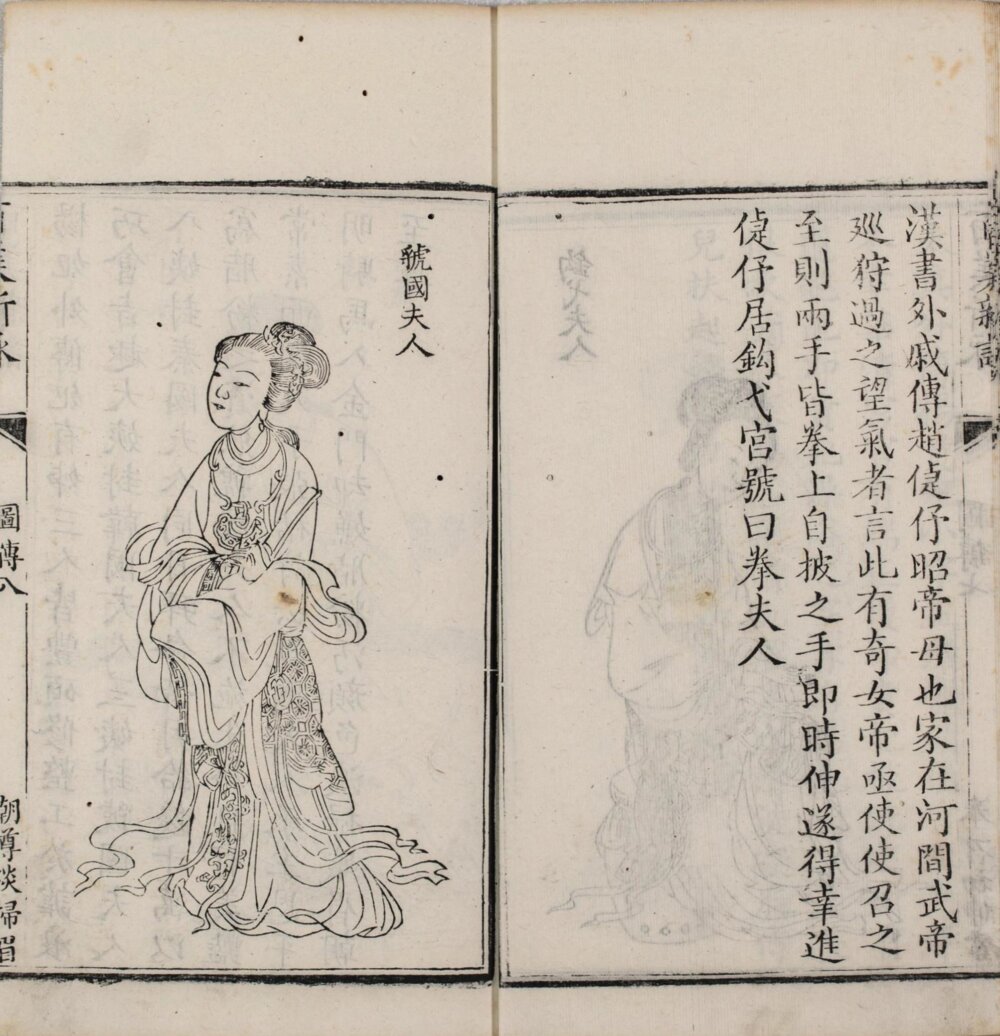 百美新詠
漢書外戚傳趙偼伃昭帝母也家在河間武帝
巡狩過之望氣者言此有奇女帝亟使使召之
至則兩手皆拳上自披之手即時伸遂得幸進
偼伃居鈎弋宮號曰拳夫人
虢國夫人
百美新詠
圖傳八
朝尊淡掃眉